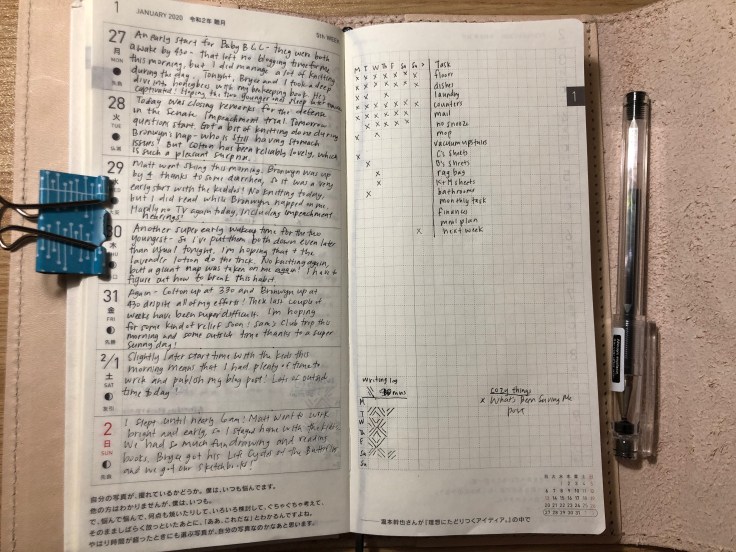 1
JANUARY 2020 令和2年 睦月
5th WEEK
27
月
MON
An early start for Baby B & C - they were both
awake by 430 - that left no blogging time for me
this morning, but I did manage a lot of knitting
during the day. Tonight, Bryce and I took a deep
dive into honeybees with my beekeeping book. He's
captivated! Hoping the two younger kids sleep later
28
火
TUE
Today was closing remarks for the defense
in the Senate impeachment trial. Tomorrow
questions start. Got a bit of knitting done during
Bronwyn's nap - who is still having stomach
issues! But Colton has been reliably lovely, which
is such a pleasant surprise.
29
Matt went skiing this morning. Bronwyn was up
by 4 thanks to some diarrhea, so it was a very
early start with the kiddos! No knitting today,
but I did read while Bronwyn napped on me.
Hardly no TV again today, including impeachment
hearings!
30
木
Another super early time for the two
youngest - so I've put them both down even later
than usual tonight. I'm hoping that + the
lavender lotion do the trick. No knitting again,
but a great nap was taken on me again! I have to
figure out how to break this habit.
31
金
FRI
Again - Colton up at 330 and Bronwyn up at
430 despite all of my efforts! These last couple of
weeks have been super difficult. I'm hoping
for some kind of relief soon! Sam's Club trip this
morning and some outside time thanks to a super
sunny day!
2/1
土
SAT
Slightly later start time with the kids this
morning means that I had plenty of time to
write and publish my blog post! Lots of outside
time today!
2
日
SUN
I slept until nearly 6am! Matt went to work
bright and early, so I stayed home with the kids.
We had so much fun drawing and reading
books. Bryce got his Life Cycles of the Butterflies
and we got our sketchbooks!
自分の写真が、撮れているかどうか。僕は、いつも悩んでます。
他の方はわかりませんが、僕は、いつも。
で、悩んで悩んで、何点も焼いたりして、いろいろ検討して、ぐちゃぐちゃ考えて、
そのまましばらく放っといたあとに、「ああ、これだな」とわかるんですよね。
やはり時間が経ったときにも選ぶ写真が、自分の写真なのかなあと思います。
M T W Th F Sa Su > Task
x x x x x x x floors
x x x x x x dishes
x x x x laundry
x x x x x x x counters
x x x x x x mail
x x x x x no snooze
x mop
vacuum upstairs
x C's sheets
x B's sheets
x rag bag
x K+M sheets
x bathrooms
monthly task
finances
meal plan
x next week
1
Writing log
M
T
W
Th
F
Sa
Su
cozy things
x What's Been Saving Me
post
──瀧本幹也さんが『理想にたどりつくアイディア。』の中で